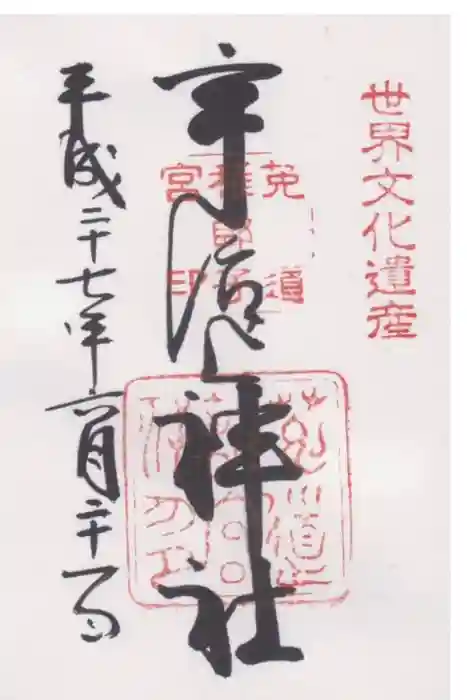 世界文化遺産
宇治上神社
菟道稚郎子宮印
平成二十七年六月二十一日